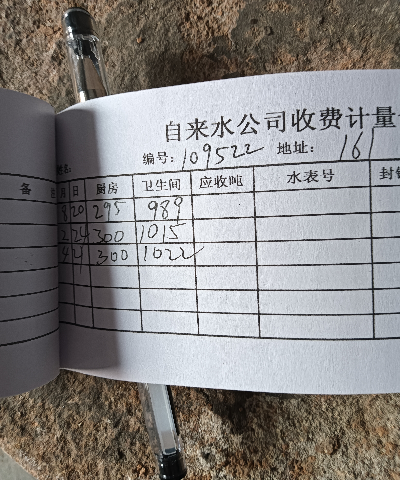 自来水公司收费计量
编号: 109522 地址: 161
备 月 日 厨房 卫生间 应收吨 水表号 封
8 20 295 989
2 24 300 1015
4 21 300 1022